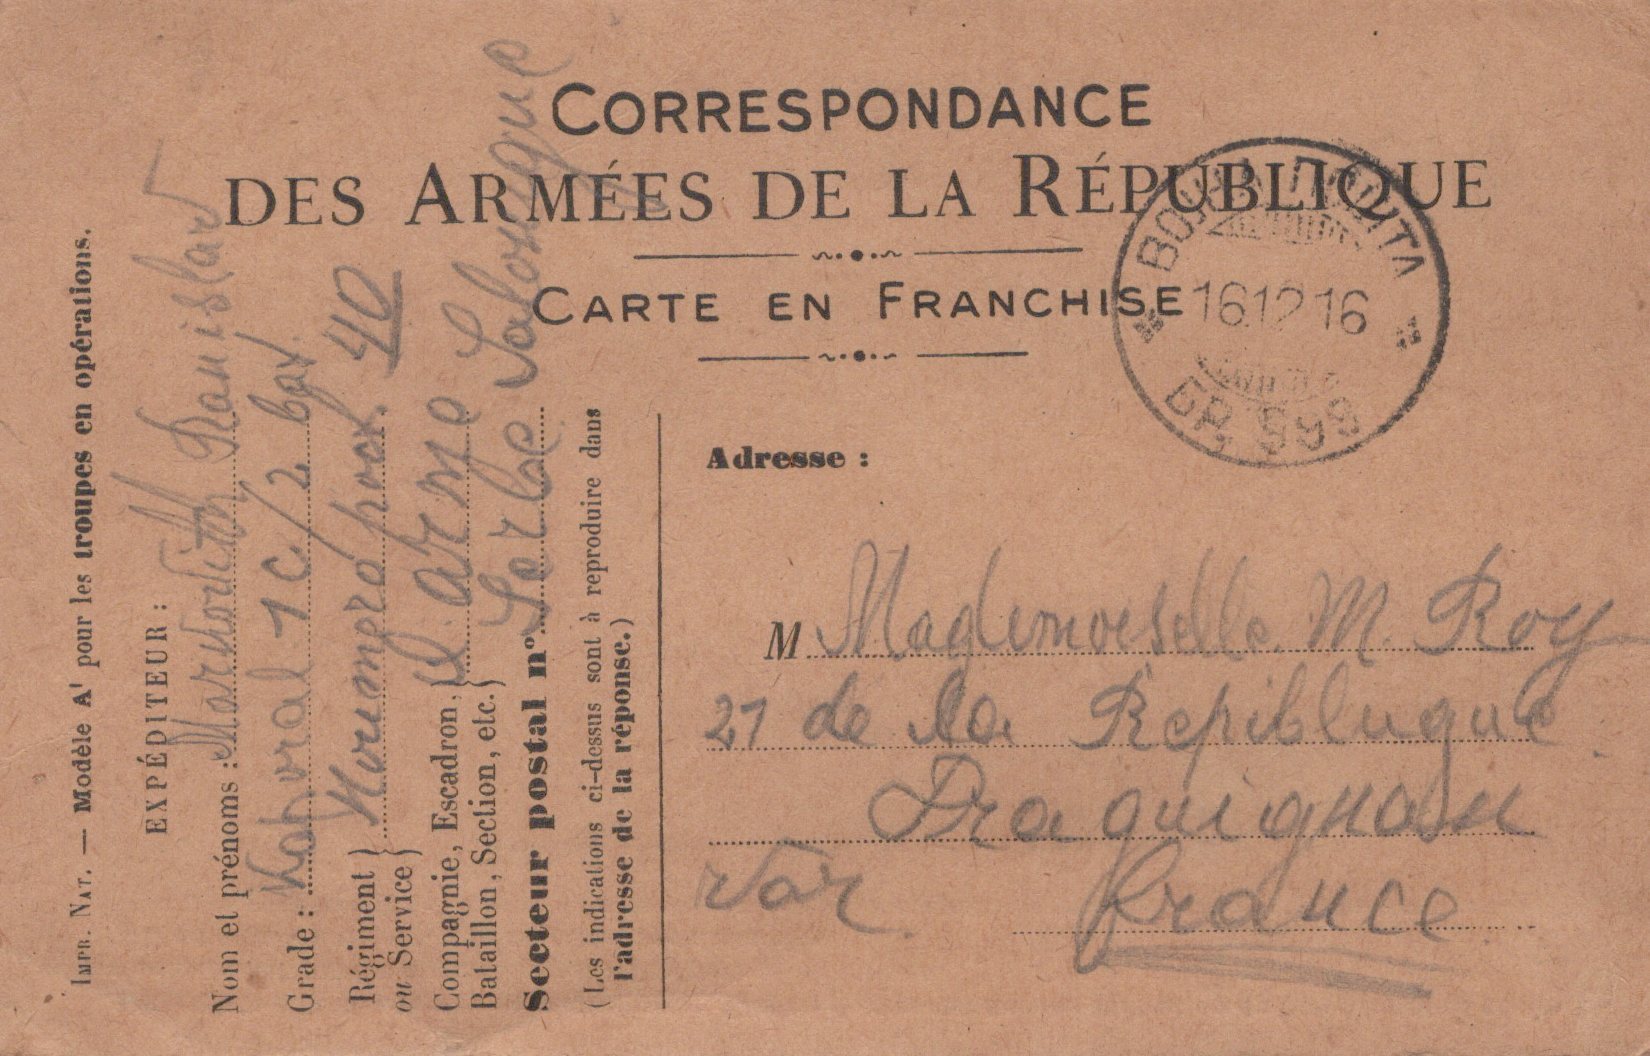 CORRESPONDANCE
DES ARMÉES DE LA RÉPUBLIQUE
CARTE EN FRANCHISE
16.12.16
БР. 999
Adresse :
M Mademoiselle M. Roy
21 de la Repibluque
Draguignan
Var.
france
IMPR. NAT. — Modèle A¹ pour les troupes en opérations.
EXPÉDITEUR :
Nom et prénoms :
Grade : Kaporal 1 c/2 baʏ.
Régiment
ou Service
Noumero 40
Compagnie, Escadron,
Bataillon, Section, etc.
Secteur postal n° Serbe Salonique
(Les indications ci-dessus sont à reproduire dans
l'adresse de la réponse.)